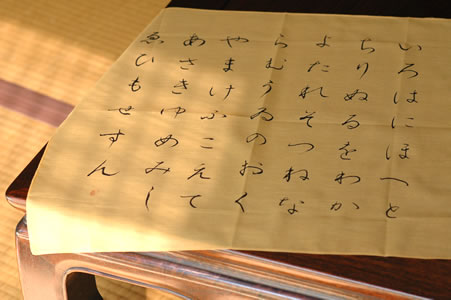 いろはにほへと
ちりぬるをわか
よたれそつねな
らむうゐのおく
やまけふこえて
あさきゆめみし
ゑひもせすん